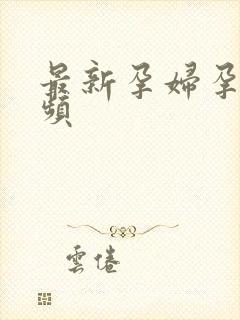 最新孕婦孕
頻
雲倦